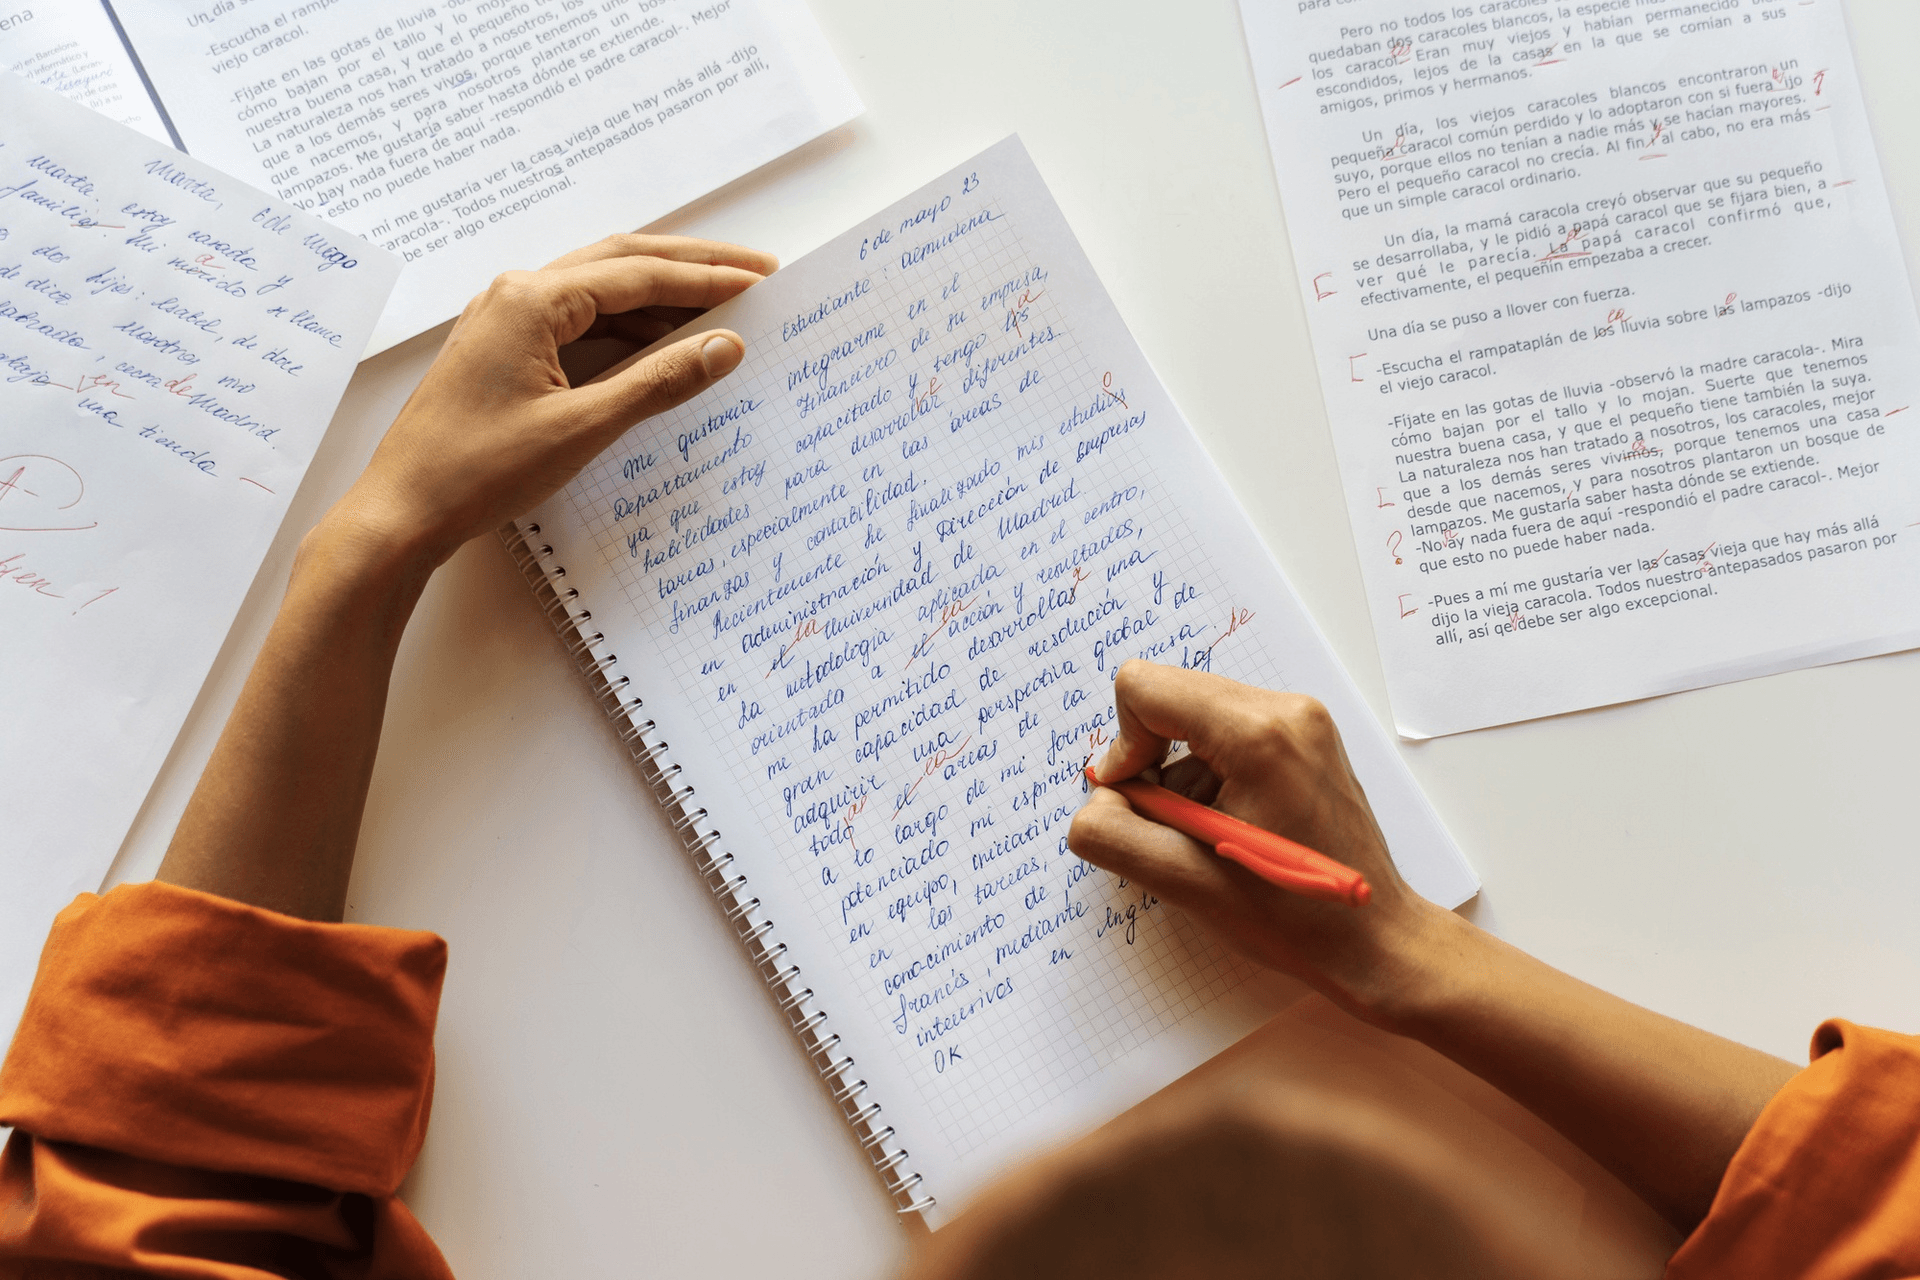 Un día se
-Escucha el rampa
viejo caracol.
-Fíjate en las gotas de lluvia -ob
cómo bajan por el tallo y lo mo
nuestra buena casa, y que el pequeño
La naturaleza nos han tratado a nosotros, los
que a los demás seres vivos, porque tenemos una
que nacemos, y para nosotros plantaron un bos
lampazos. Me gustaría saber hasta dónde se extiende.
No hay nada fuera de aquí -respondió el padre caracol-. Mejor
esto no puede haber nada.
a mí me gustaría ver la casa vieja que hay más allá -dijo
caracola-. Todos nuestros antepasados pasaron por allí,
be ser algo excepcional.
Marta, 6 de mayo
marta. estoy casada y
familias. Mi merido se llama
a
dos hijos: Isabel, de doce
de diez
nosotros, mi
cerca de Madrid.
en
una tienda
A-
bien!
6 de mayo 23
Estudiante: Almudena
Me gustaría integrarme en el
Departamento Financiero de su empresa,
ya que estoy capacitado y tengo los
a
habilidades para desarrolar diferentes
tareas, especialmente en las áreas de
finanzas y contabilidad.
Recientemente he finalizado mis estudios
o
en administración y Dirección de Empresas
en el Universidad de Madrid.
la
La metodología aplicada en el centro,
orientada a el acción y resultados,
la
me ha permitido desarrollas una
r
gran capacidad de resdución y
adquirir una perspectiva global de
todo el areas de la empresa.
as la
a lo largo de mi formac
he
potenciado mi espiritu
en equipo, iniciativa
en las tareas,
conocimiento de id
francés, mediante
intensivos en Ingl
OK
Pero no todos los caracoles
quedaban dos caracoles blancos, la especie más
los caracol. Eran muy viejos y habían permanecido
escondidos, lejos de la casas en la que se comían a sus
amigos, primos y hermanos.
Un día, los viejos caracoles blancos encontraron un
pequeña caracol común perdido y lo adoptaron con si fuera ijo
suyo, porque ellos no tenían a nadie más y se hacían mayores.
Pero el pequeño caracol no crecía. Al fin i al cabo, no era más
que un simple caracol ordinario.
Un día, la mamá caracola creyó observar que su pequeño
se desarrollaba, y le pidió a papá caracol que se fijara bien, a
ver qué le parecía. La papá caracol confirmó que,
efectivamente, el pequeñín empezaba a crecer.
Una día se puso a llover con fuerza.
-Escucha el rampataplán de los lluvia sobre las lampazos -dijo
la
el viejo caracol.
-Fíjate en las gotas de lluvia -observó la madre caracola-. Mira
cómo bajan por el tallo y lo mojan. Suerte que tenemos
nuestra buena casa, y que el pequeño tiene también la suya.
La naturaleza nos han tratado a nosotros, los caracoles, mejor
que a los demás seres vivimos, porque tenemos una casa
desde que nacemos, y para nosotros plantaron un bosque de
lampazos. Me gustaría saber hasta dónde se extiende.
-No ay nada fuera de aquí -respondió el padre caracol-. Mejor
que esto no puede haber nada.
-Pues a mí me gustaría ver las casas vieja que hay más allá
dijo la vieja caracola. Todos nuestro antepasados pasaron por
allí, así qe debe ser algo excepcional.